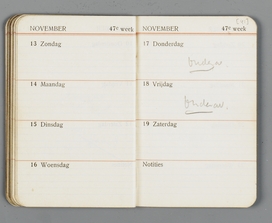 NOVEMBER 47e week
13 Zondag
14 Maandag
15 Dinsdag
16 Woensdag
NOVEMBER 47e week
17 Donderdag
18 Vrijdag
19 Zaterdag
Notities